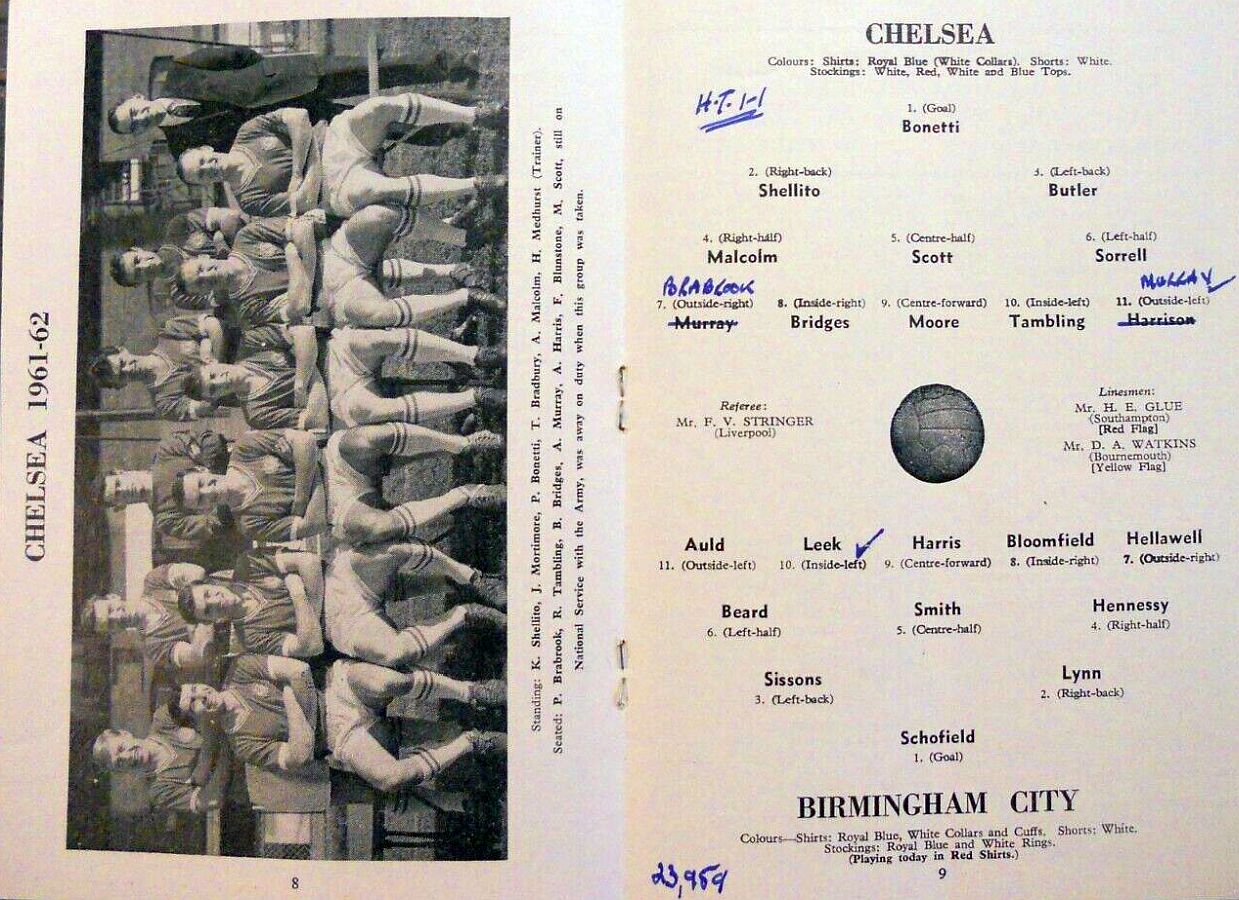 CHELSEA 1961-62
Standing: K. Shellito, J. Mortimore, P. Bonetti, T. Bradbury, A. Malcolm, H. Medhurst (Trainer).
Seated: P. Brabrook, R. Tambling, B. Bridges, A. Murray, A. Harris, F. Blunstone, M. Scott, still on
National Service with the Army, was away on duty when this group was taken.
8
CHELSEA
Colours: Shirts: Royal Blue (White Collars). Shorts: White.
Stockings: White, Red, White and Blue Tops.
H.T. 1-1
1. (Goal)
Bonetti
2. (Right-back) 3. (Left-back)
Shellito Butler
4. (Right-half) 5. (Centre-half) 6. (Left-half)
Malcolm Scott Sorrell
BRABROOK MURRAY
7. (Outside-right) 8. (Inside-right) 9. (Centre-forward) 10. (Inside-left) 11. (Outside-left)
Murray Bridges Moore Tambling Harrison
Referee:
Mr. F. V. STRINGER
(Liverpool)
Linesmen:
Mr. H. E. GLUE
(Southampton)
[Red Flag]
Mr. D. A. WATKINS
(Bournemouth)
[Yellow Flag]
Auld Leek Harris Bloomfield Hellawell
11. (Outside-left) 10. (Inside-left) 9. (Centre-forward) 8. (Inside-right) 7. (Outside-right)
Beard Smith Hennessy
6. (Left-half) 5. (Centre-half) 4. (Right-half)
Sissons Lynn
3. (Left-back) 2. (Right-back)
Schofield
1. (Goal)
BIRMINGHAM CITY
Colours—Shirts: Royal Blue, White Collars and Cuffs. Shorts: White.
Stockings: Royal Blue and White Rings.
(Playing today in Red Shirts.)
23,959
9